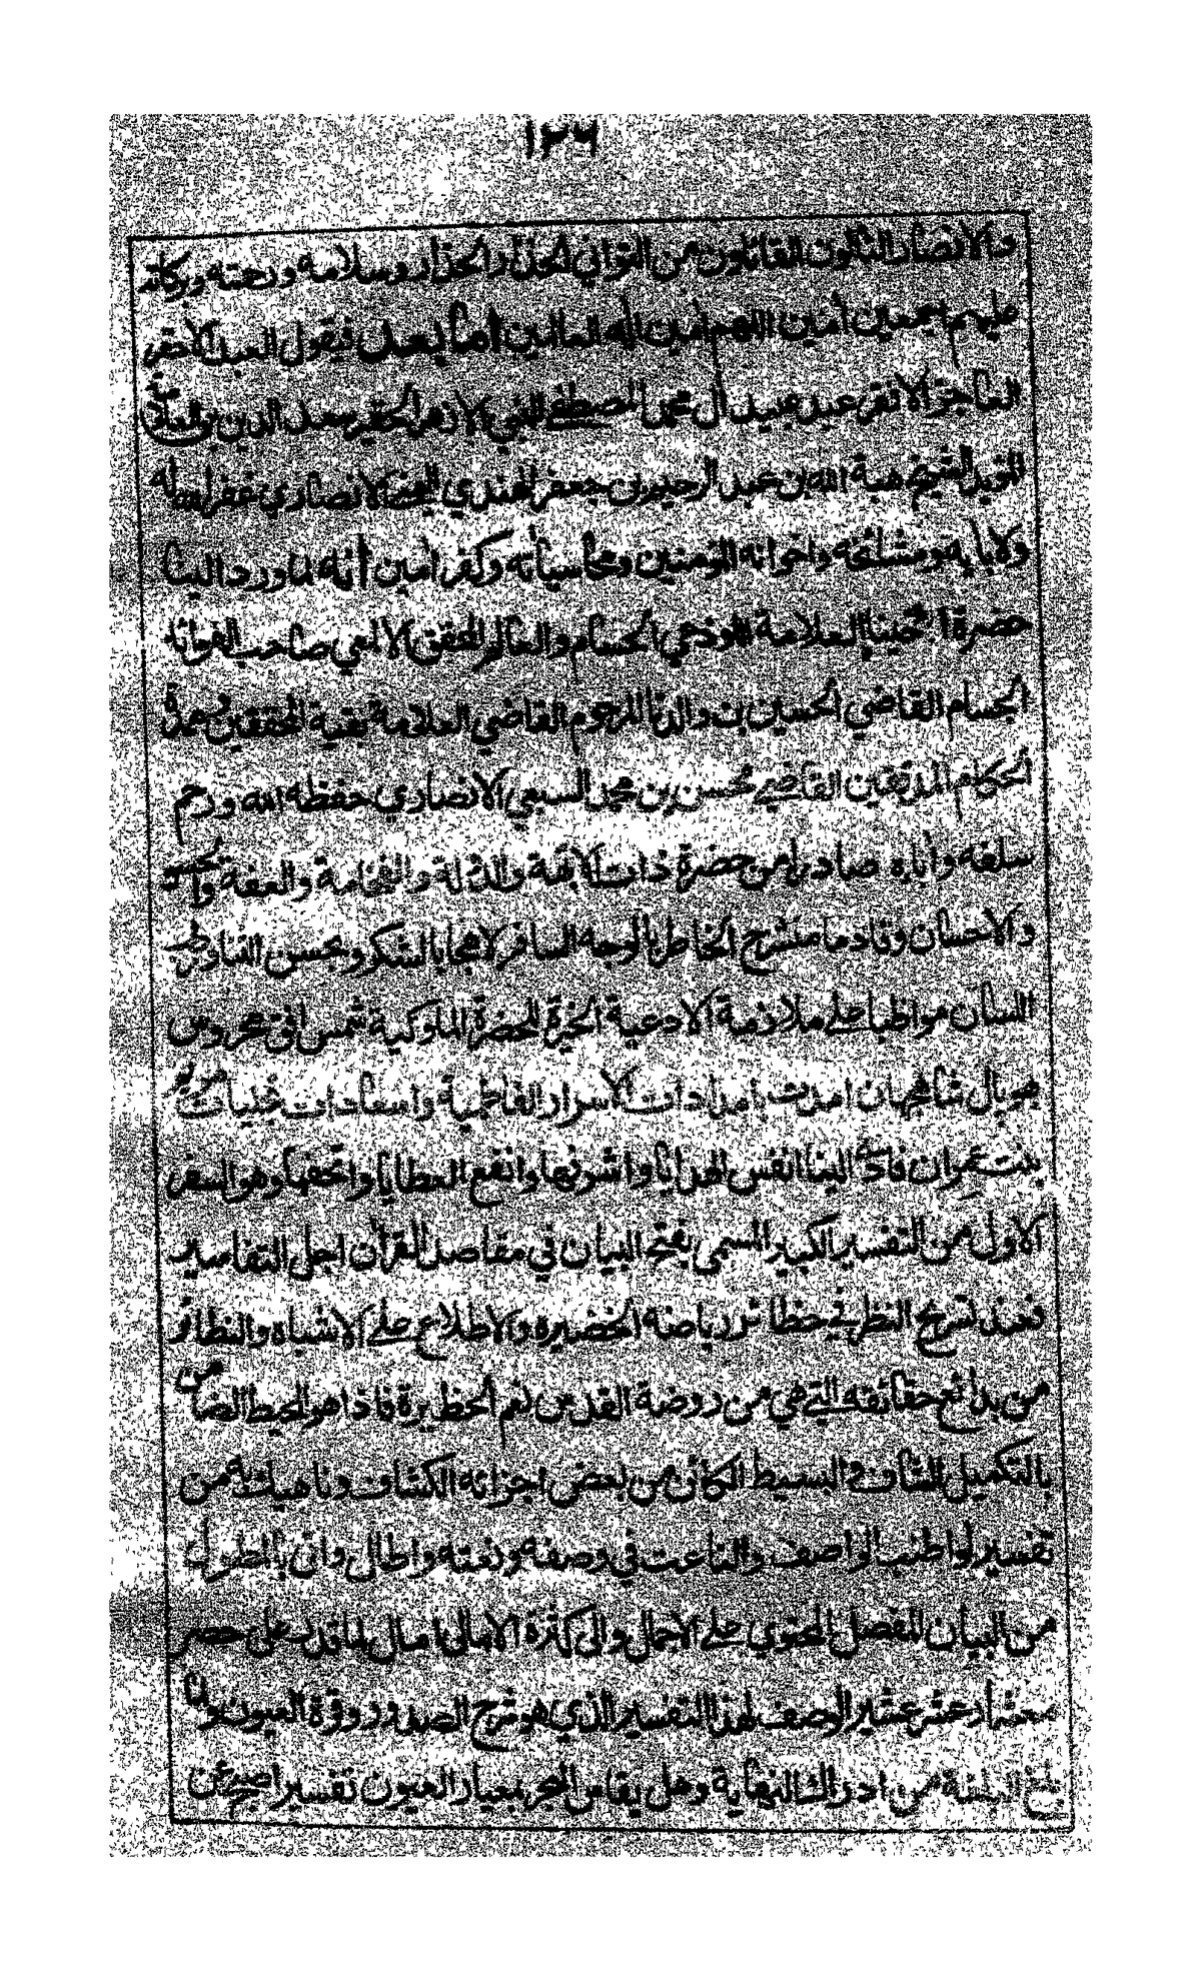 ١٢٦
والانصار القائلون من التواني الحذار الحذار وسلامه ورحمته وبركاته
عليهم اجمعين أمين اللهم أمين إله العالمين أما بعد فيقول العبد الأحقر
العاجز الافقر عبد عبيد آل محمد المصطفى النبي الازهر الحقير سعد الدين
الشيخ هبة الله بن عبد الرحيم بن جعفر الهندي الانصاري غفر الله له
ولآبايه ومشائخه واخوانه المؤمنين ومحا سيأته وكفر أمين أنه لما ورد الينا
حضرة العلامة اللوذعي الحسام والعالم المحقق الالمعي صاحب الفوائد
الجسام القاضي الحسين بن والدنا المرحوم القاضي العلامة بقية المحققين وعمدة
الحكام المدققين القاضي محسن بن محمد السبعي الانصاري حفظه الله ورحم
سلفه وأباه صادرا من حضرة ذات الابهة والفخامة والعفة
والاحسان وقادما منشرح الخاطر بالوجه السافر لاهجا بالشكر وبحسن الثناء
اللسان مواظبا على ملازمة الادعية الخيرة للحضرة الملوكية شمس افق محروس
بهوبال شاهجهان امدت بامدادات الاسرار الفاطمية واسعادات مريم
بنت عمران فأدى الينا انفس الهدايا واشرفها وانفع العطايا واتحفها وهو السفر
الاول من التفسير الكبير المسمى بفتح البيان في مقاصد القرآن اجل التفاسير
فبعد تسريح النظر في حظائر رياضه الخضيرة والاطلاع على الاشباه والنظائر
من بدائع حقائقه التي هي من روضة القدس نعم الحظيرة فاذا هو المحيط الضامن
بالتكميل الشاف والبسيط الكائن من بعض اجزائه الكشاف وناهيك به من
تفسير لو اطنب الواصف والناعت في وصفه ونعته واطال واتى بالمطول
من البيان المفصل المحتوي على الاجمال والى كثرة الامالي مال لما قدر على حصر
معشار عشر عشير الوصف لهذا التفسير الذي هو شرح الصدور وقرة العيون ولما
بلغ البلغة من ادراك النهاية وهل يقاس البحر بمعيار العيون تفسير اصبح عن